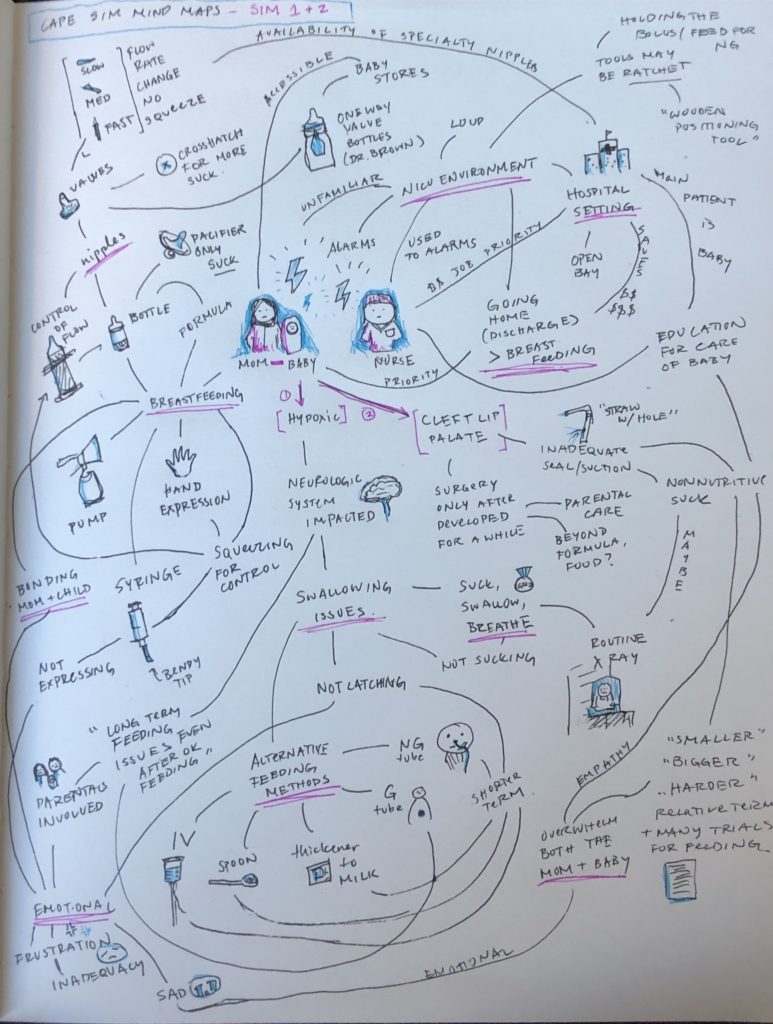 CAPE SIM MIND MAPS - SIM 1 + 2
SLOW
MED
FAST
FLOW
RATE
CHANGE
NO
SQUEEZE
AVAILABILITY OF SPECIALTY NIPPLES
HOLDING THE
BOLUS / FEED FOR
NG
TOOLS MAY
BE RATCHET
"WOODEN
POSITIONING
TOOL"
ACCESSIBLE
BABY
STORES
ONE WAY
VALVE
BOTTLES
(DR. BROWN)
LOUD
VALVES
CROSSHATCH
FOR MORE
SUCK.
UNFAMILIAR
NICU ENVIRONMENT
HOSPITAL
SETTING
MAIN
PATIENT
IS
BABY
nipples
PACIFIER
ONLY
SUCK
ALARMS
USED
TO ALARMS
DR JOB PRIORITY
OPEN
BAY
SAVES
$$
$$$
CONTROL
OF
FLOW
BOTTLE
FORMULA
GOING
HOME
(DISCHARGE)
> BREAST
FEEDING
MOM - BABY
NURSE
PRIORITY
EDUCATION
FOR CARE
OF BABY
BREASTFEEDING
①
[HYPOXIC]
②
[CLEFT LIP
PALATE]
"STRAW
W/ HOLE"
INADEQUATE
SEAL/SUCTION
NONNUTRITIVE
SUCK
PUMP
HAND
EXPRESSION
NEUROLOGIC
SYSTEM
IMPACTED
SURGERY
ONLY AFTER
DEVELOPED
FOR A WHILE
PARENTAL
CARE
BEYOND
FORMULA,
FOOD?
MAYBE
SQUEEZING
FOR
CONTROL
BONDING
MOM + CHILD
SYRINGE
SWALLOWING
ISSUES.
SUCK,
SWALLOW,
BREATHE
NOT SUCKING
ROUTINE
X RAY
NOT
EXPRESSING
BENDY
TIP
NOT LATCHING
"LONG TERM
FEEDING
ISSUES EVEN
AFTER OK
FEEDING"
PARENTALS
INVOLVED
ALTERNATIVE
FEEDING
METHODS
NG
tube
G
tube
SHORTER
TERM
EMPATHY
"SMALLER"
"BIGGER"
"HARDER"
RELATIVE TERM
+ MANY TRIALS
FOR FEEDING
IV
SPOON
thickener
to
MILK
OVERWHELM
BOTH THE
MOM + BABY
EMOTIONAL
FRUSTRATION
INADEQUACY
SAD
EMOTIONAL